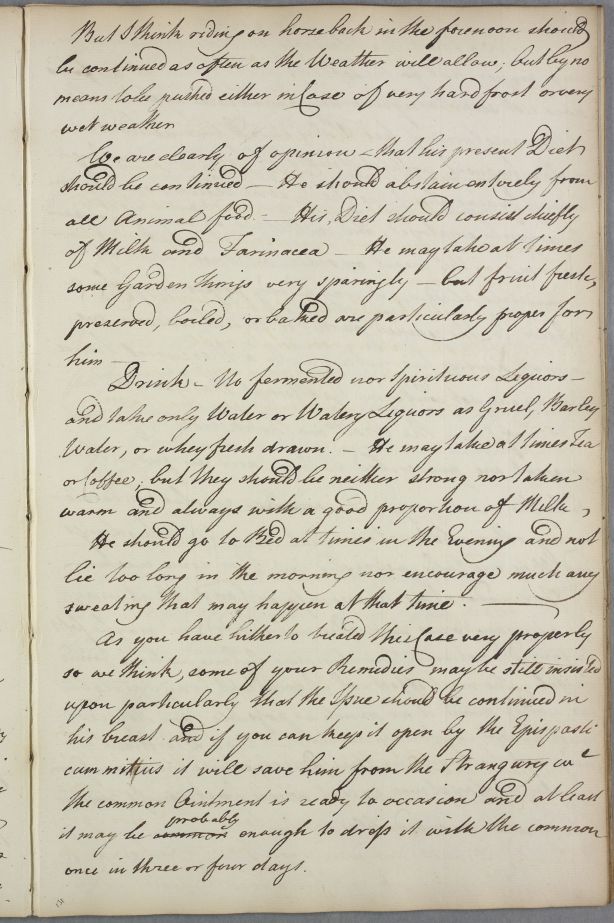 But I think riding on horseback in the forenoon should
be continued as often as the Weather will allow; but by no
means to be pushed either in Case of very hard frost or very
wet weather
We are clearly of opinion - that his present Diet
should be continued — He should abstain entirely from
all Animal food — His Diet should consist chiefly
of Milk and Farinacea — He may take at times
some Garden things very sparingly — but fruit fresh,
preserved, boiled, or baked are particularly proper for
him —
Drink - No fermented nor Spirituous Liquors —
and take only Water or Watery Liquors as Gruel, Barley
Water, or whey fresh drawn. — He may take at times Tea
or Coffee, but they should be neither strong nor taken
warm and always with a good proportion of Milk,
He should go to Bed at times in the Evening and not
lie too long in the morning nor encourage much any
sweating that may happen at that time. —
As you have hitherto treated this Case very properly
so we think, some of your Remedies may be still insisted
upon particularly that the Issue should be continued in
his breast and if you can keep it open by the Epispasti
cum mitius it will save him from the Strangury wc
the common Ointment is ready to occasion and at least
it may be common probably enough to dress it with the common
once in three or four days.